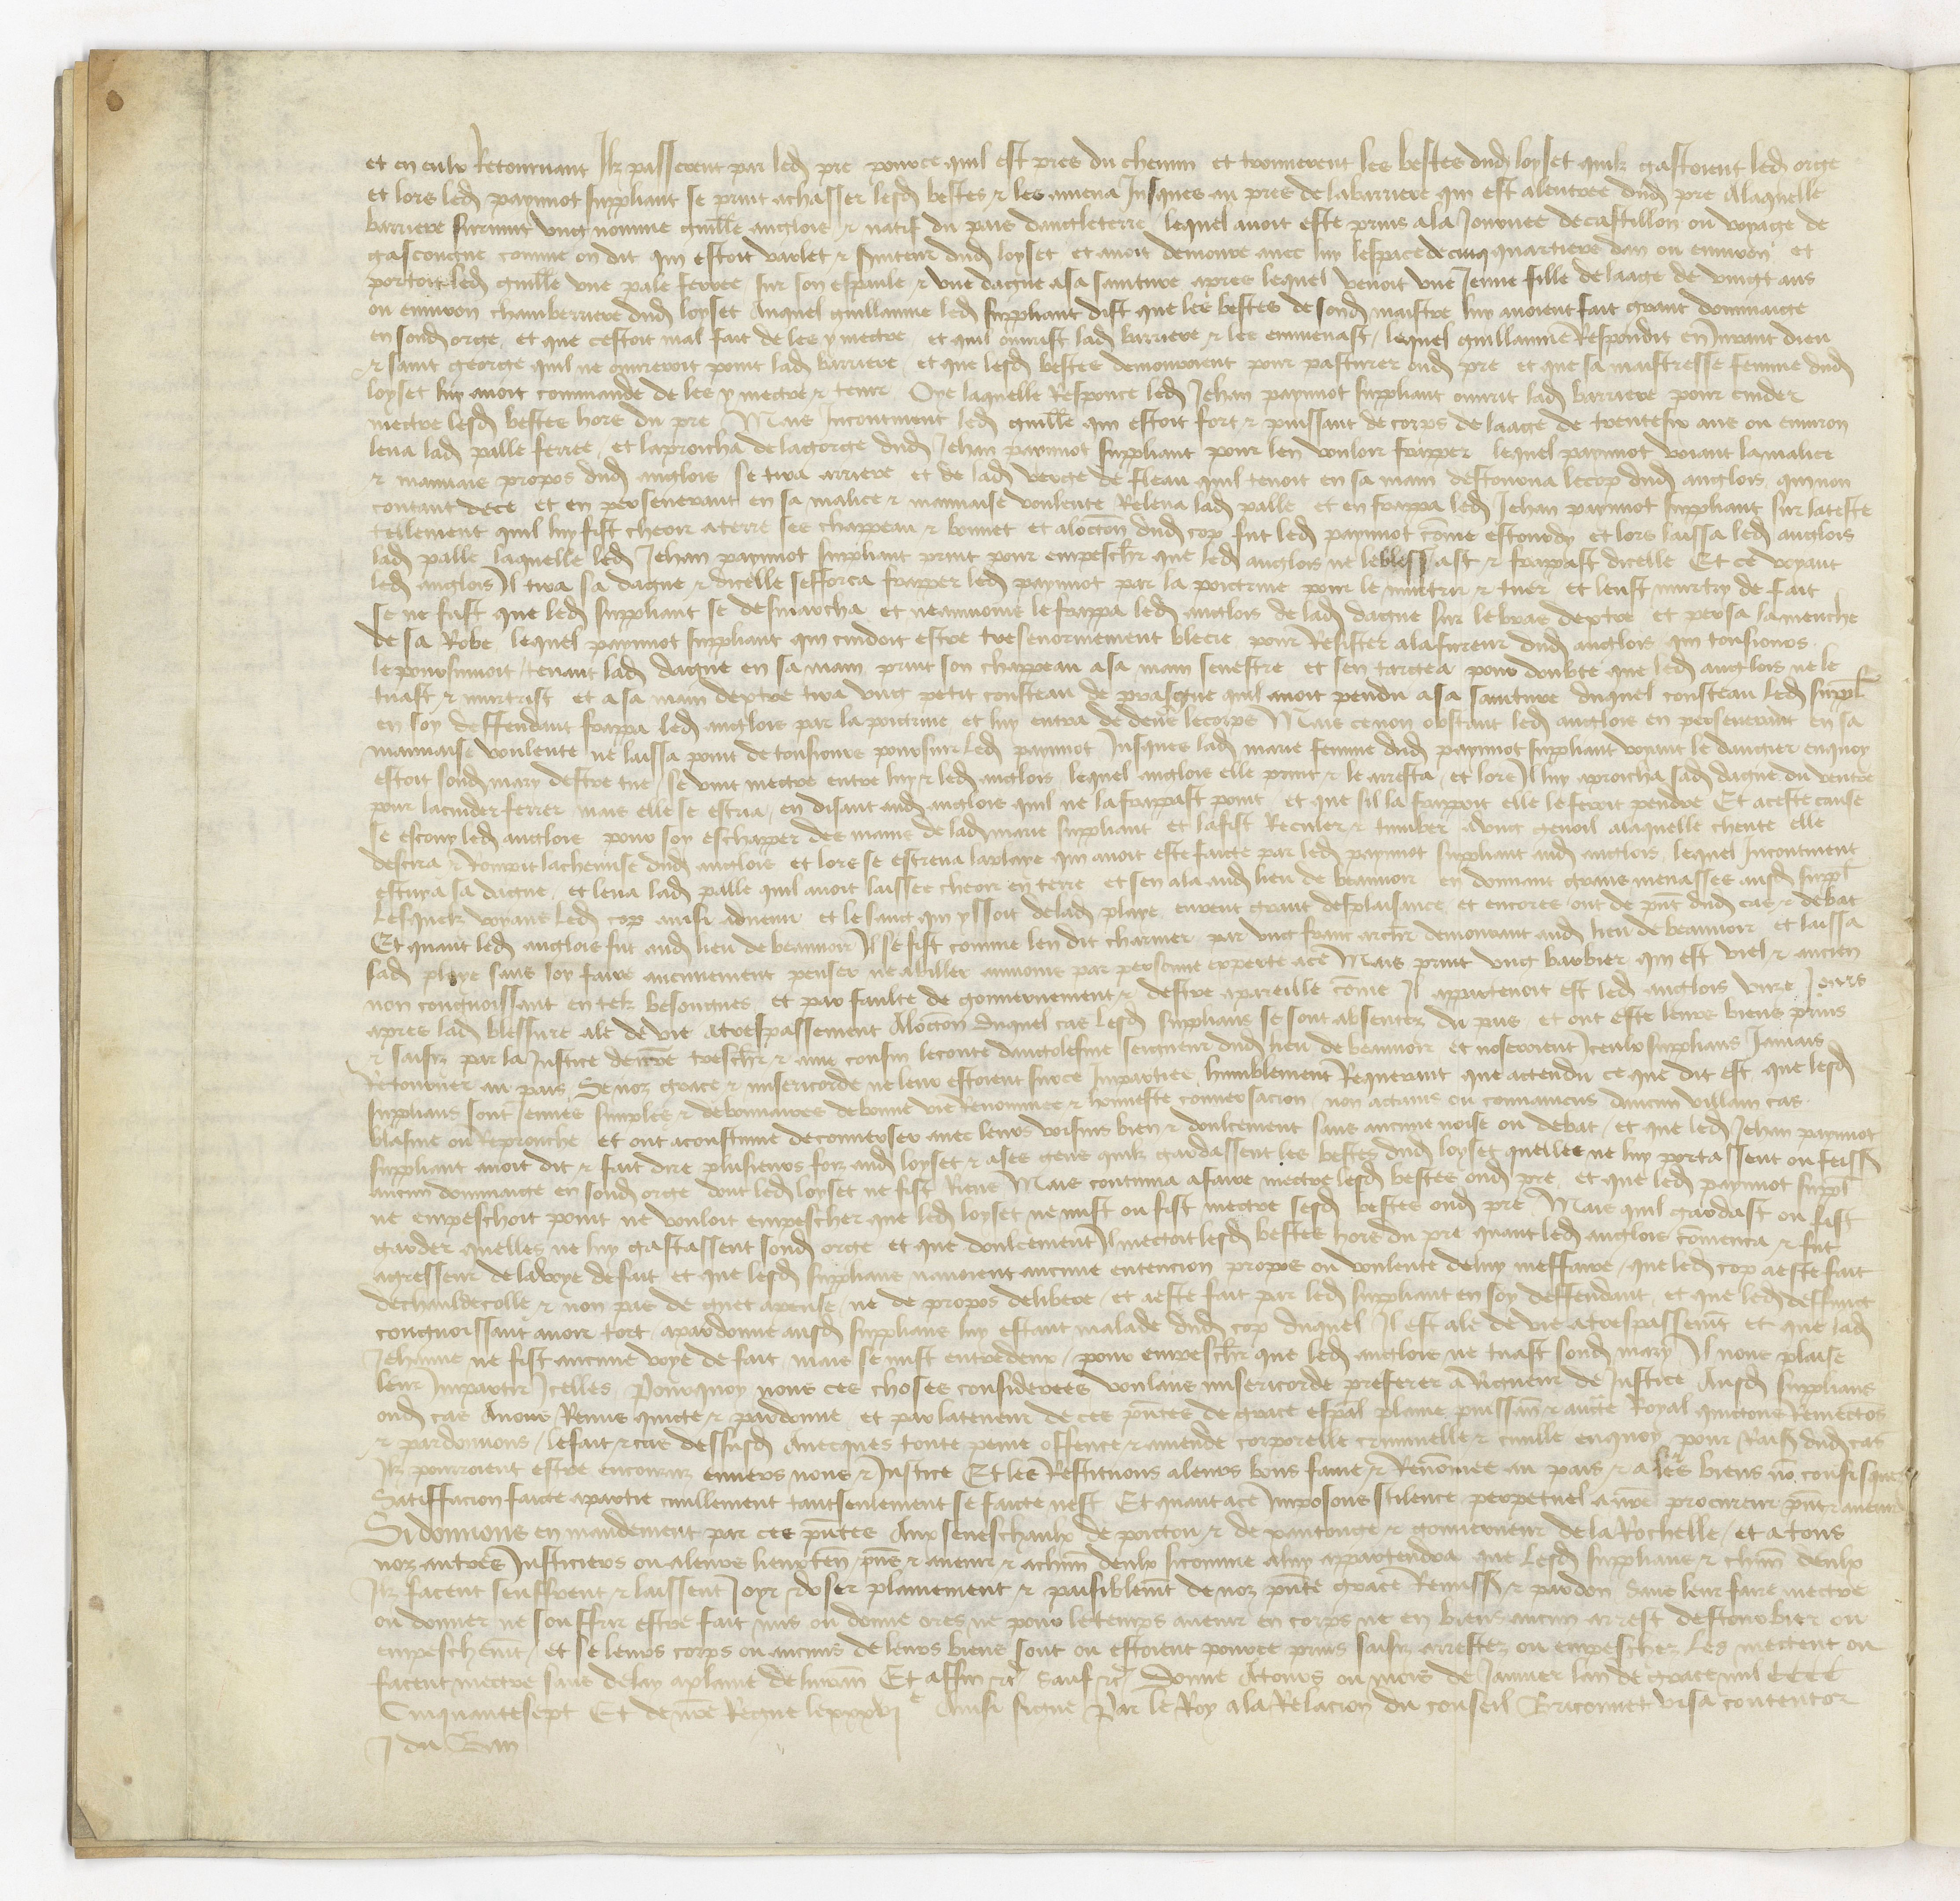 et en eulx retournant Ilz passerent par led pre pource quil est pres du chemin et trouverent les bestes dud loyset quilz gastoient led orge
et lors led paynnot suppliant se print achasser lesd bestes & les amena Jusques au pres de labarriere qui est alentree dud pre Alaquelle
barriere survint ung nomme guille anglois & natif du pais dangleterre lequel avoit este prins ala Journee decastillon ou voyage de
gascongne comme on dit qui estoit varlet & serviteur dud loyset et avoit demoure avec luy lespacedecinq quartiers dan ou environ et
portoit led guille une pale ferree sur son espaule & une dague asa sainture apres lequel venoit une Jeune fille de laage de vingt ans
ou environ chamberriere dud loyset Auquel guillaume led suppliant dist que les bestes de sond maistre luy avoient fait grant dommaige
en sond orge et que cestoit mal fait de les y mectre et quil ouvrist lad barriere & les emmenast lequel guillaume Respondit en Jurant dieu
& saint george quil ne ouvreroit point lad barriere et que lesd bestes demourroient pour pasturer oud pre et que sa maistresse femme dud
loyset luy avoit commande de les y mectre & tenir Oye laquelle Responce led Jehan paynnot suppliant ouvrit lad barriere pour cuider
mectre lesd bestes hors du pre Mais Incontinent led guille qui estoit fort & puissant de corps de laage de trentesix ans ou environ
leva lad palle ferree et laproicha de lagorge dud Jehan paynnot suppliant pour len vouloir frapper lequel paynnot voiant lamalice
& mauvais propos dud anglois se tira arriere et de lad verge de fleau quil tenoit en sa main destourna lecop dud anglois qui non
contant dece et en perseverant en sa malice & mauvaise voulente Releva lad palle et en frappa led Jehan paynnot suppliant sur lateste
tellement quil luy fist cheoir aterre ses chappeau & bonnet et aloccon dud cop fut led paynnot come estourdy et lors laissa led anglois
lad palle laquelle led Jehan paynnot suppliant print pour empescher que led anglois ne leblessast & frapast dicelle Et ce voyant
led anglois Il tira sa dague & dicelle sefforca frapper led paynnot par la poictrine pour le murtrir & tuer et leust murtry de fait
se ne fust que led suppliant se desmarcha et neanmoins lefrappa led anglois de lad dague sur lebras dextre et persa lamenche
de sa Robe lequel paynnot suppliant qui cuidoit estre tresenormement blecie pour Resister alafureur dud anglois qui tousiours
lepoursuivoit tenant lad dague en sa main print son chappeau asa main senestre et sen targea pour doubte que led anglois ne le
tuast & murtrist et a sa main dextre tira ung petit cousteau de quil avoit pendu a sa sainture duquel cousteau led suppl
en soy deffendant frappa led anglois par la poictrine et luy entra de dens lecorps Mais cenon obstant led anglois en perseverant en sa
mauvaise voulente ne laissa point de tousiours poursuir led paynnot Jusques lad marie femme dud paynnot suppliant voyant le dangier enquoy
estoit sond mary destre tue se vint mectre entre luy & led anglois lequel anglois elle print & le arresta et lors Il luy aproicha sad dague du ventre
pour lacuider ferrer mais elle se escria en disant aud anglois quil ne lafrappast point et que sil la frappoit elle leferoit pendre Et aceste cause
se escouy led anglois pour soy eschapper des mains de lad marie suppliant et lafist Reculer & tumber adung genoil alaquelle cheute elle
descira & Rompit lachemise dud anglois et lors se estreva laplaye qui avoit este faicte par led paynnot suppliant aud anglois lequel Incontinent
estuya sa dague et leva lad palle quil avoit laissee cheoir en terre et sen ala aud lieu de beauvoir en donnant grans menasses ausd suppl
Lesquelz voyans led cop ainsi advenu et lesang qui yssoit delad playe eurent grant desplaisance et encores ont de pnt dud cas & debat
Et quant led anglois fut aud lieu de beauvoir Il se fist comme len dit charmer par ung franc archer demourant aud lieu de beauvoir et laissa
sad playe sans soy faire aucunement penser ne abiller aumoins par personne experte ace Mais print ung barbier qui est viel & ancien
non congnoissant en telz besongnes et par faulte de gouvernement & destre apareille come Il appartenoit est led anglois unze Jours
apres lad blessure ale de vie atrespassement Aloccon duquel cas lesd supplians se sont absentez du pais et ont este leurs biens prins
& saisiz par la Justice denre treschr & ame cousin leconte dangolesme seigneur dud lieu de beauvoir et noseroient Iceulx supplians Jamais
Retourner au pais Se noz grace & misericorde ne leur estoient surce Imparties humblement Requerant que actendu ce que dit est que lesd
supplians sont Jeunes simples & debonnaires debonne vie Renommee & honneste conversacion non actains ou convaincus daucun villain cas
blasme ou Reprouche et ont acoustume deconverser avec leurs voisins bien & doulcement sans aucune noise ou debat et que led Jehan paynnot
suppliant avoit dit & fait dire plusieurs foiz aud loyset & ases gens quilz gardassent les bestes dud loyset quelles ne luy portassent ou feiss
aucun dommaige en sond orge dont led loyset ne fist Riens Mais continua afaire mectre lesd bestes oud pre et que led paynnot suppl
ne empeschoit point ne vouloit empescher que led loyset ne mist ou fist mectre sesd bestes oud pre Mais quil gardast ou fist
garder quelles ne luy gastassent sond orge et que doulcement Il mectoit lesd bestes hors du pre quant led anglois comenca & fut
agresseur deladvoye defait et que lesd supplians navoient aucune entencion propos ou voulente deluy meffaire que led cop aeste fait
dechauldecolle & non pas de guet apense ne de propos delibere et aeste fait par led suppliant en soy deffendant et que led deffunct
congnoissant avoir tort apardonne ausd supplians luy estant malade dud cop duquel Il est ale de vie atrespassement et que lad
Jehanne ne fist aucune voye de fait mais se mist entredeux pour empescher que led anglois ne tuast sond mary Il nous plaise
leur Impartir Icelles Pourquoy nous ces choses considerees voulans misericorde preferer a Rigueur de Justice Ausd supplians
oud cas Avons Remis quicte & pardonne et par lateneur de ces pntes de grace espal plaine puissan & aucte Royal quictons Remectons
& pardonnons lefait & cas dessusd Avecques toute peine offence & amende corporelle criminelle & civille enquoy pour Rais dud cas
Ilz pourroient estre encouruz envers nous & Justice Et les Restituons aleurs bons fame & Renommee au pais & a leurs biens no confisquez
Satiffacion faicte apartie civillement tantseulement se faicte nest Et quant ace Imposons silence perpetuel a nre procureur pnt & avenir
Si donnons en mandement par ces pntes Aux seneschaulx de poictou & de xantonge & gouverneur delaRochelle et atous
noz autres Justiciers ou aleurs lieuxten pns & avenir & achun deulx sicomme aluy appartendra que lesd supplians & chun deulx
Ilz facent seuffrent & laissent Joyr & user plainement & paisiblemt de noz pnte grace Remiss & pardon Sans leur faire mectre
ou donner ne souffrir estre fait mis ou donne ores ne pour letemps avenir en corps ne en biens aucun arrest destourbier ou
empeschemt et se leurs corps ou aucuns de leurs biens sont ou estoient pource prins saisiz arrestez ou empeschez les mectent ou
facent mectre sans delay aplaine delivran Et affin &c Sauf &c Donne Atours ou mois de Janvier lan de grace mil CCCC
Cinquantesept Et denre Regne lexxxvi e Ainsi signe Par le Roy alaRelacion du conseil Briconnet visa contentor
J du Ban